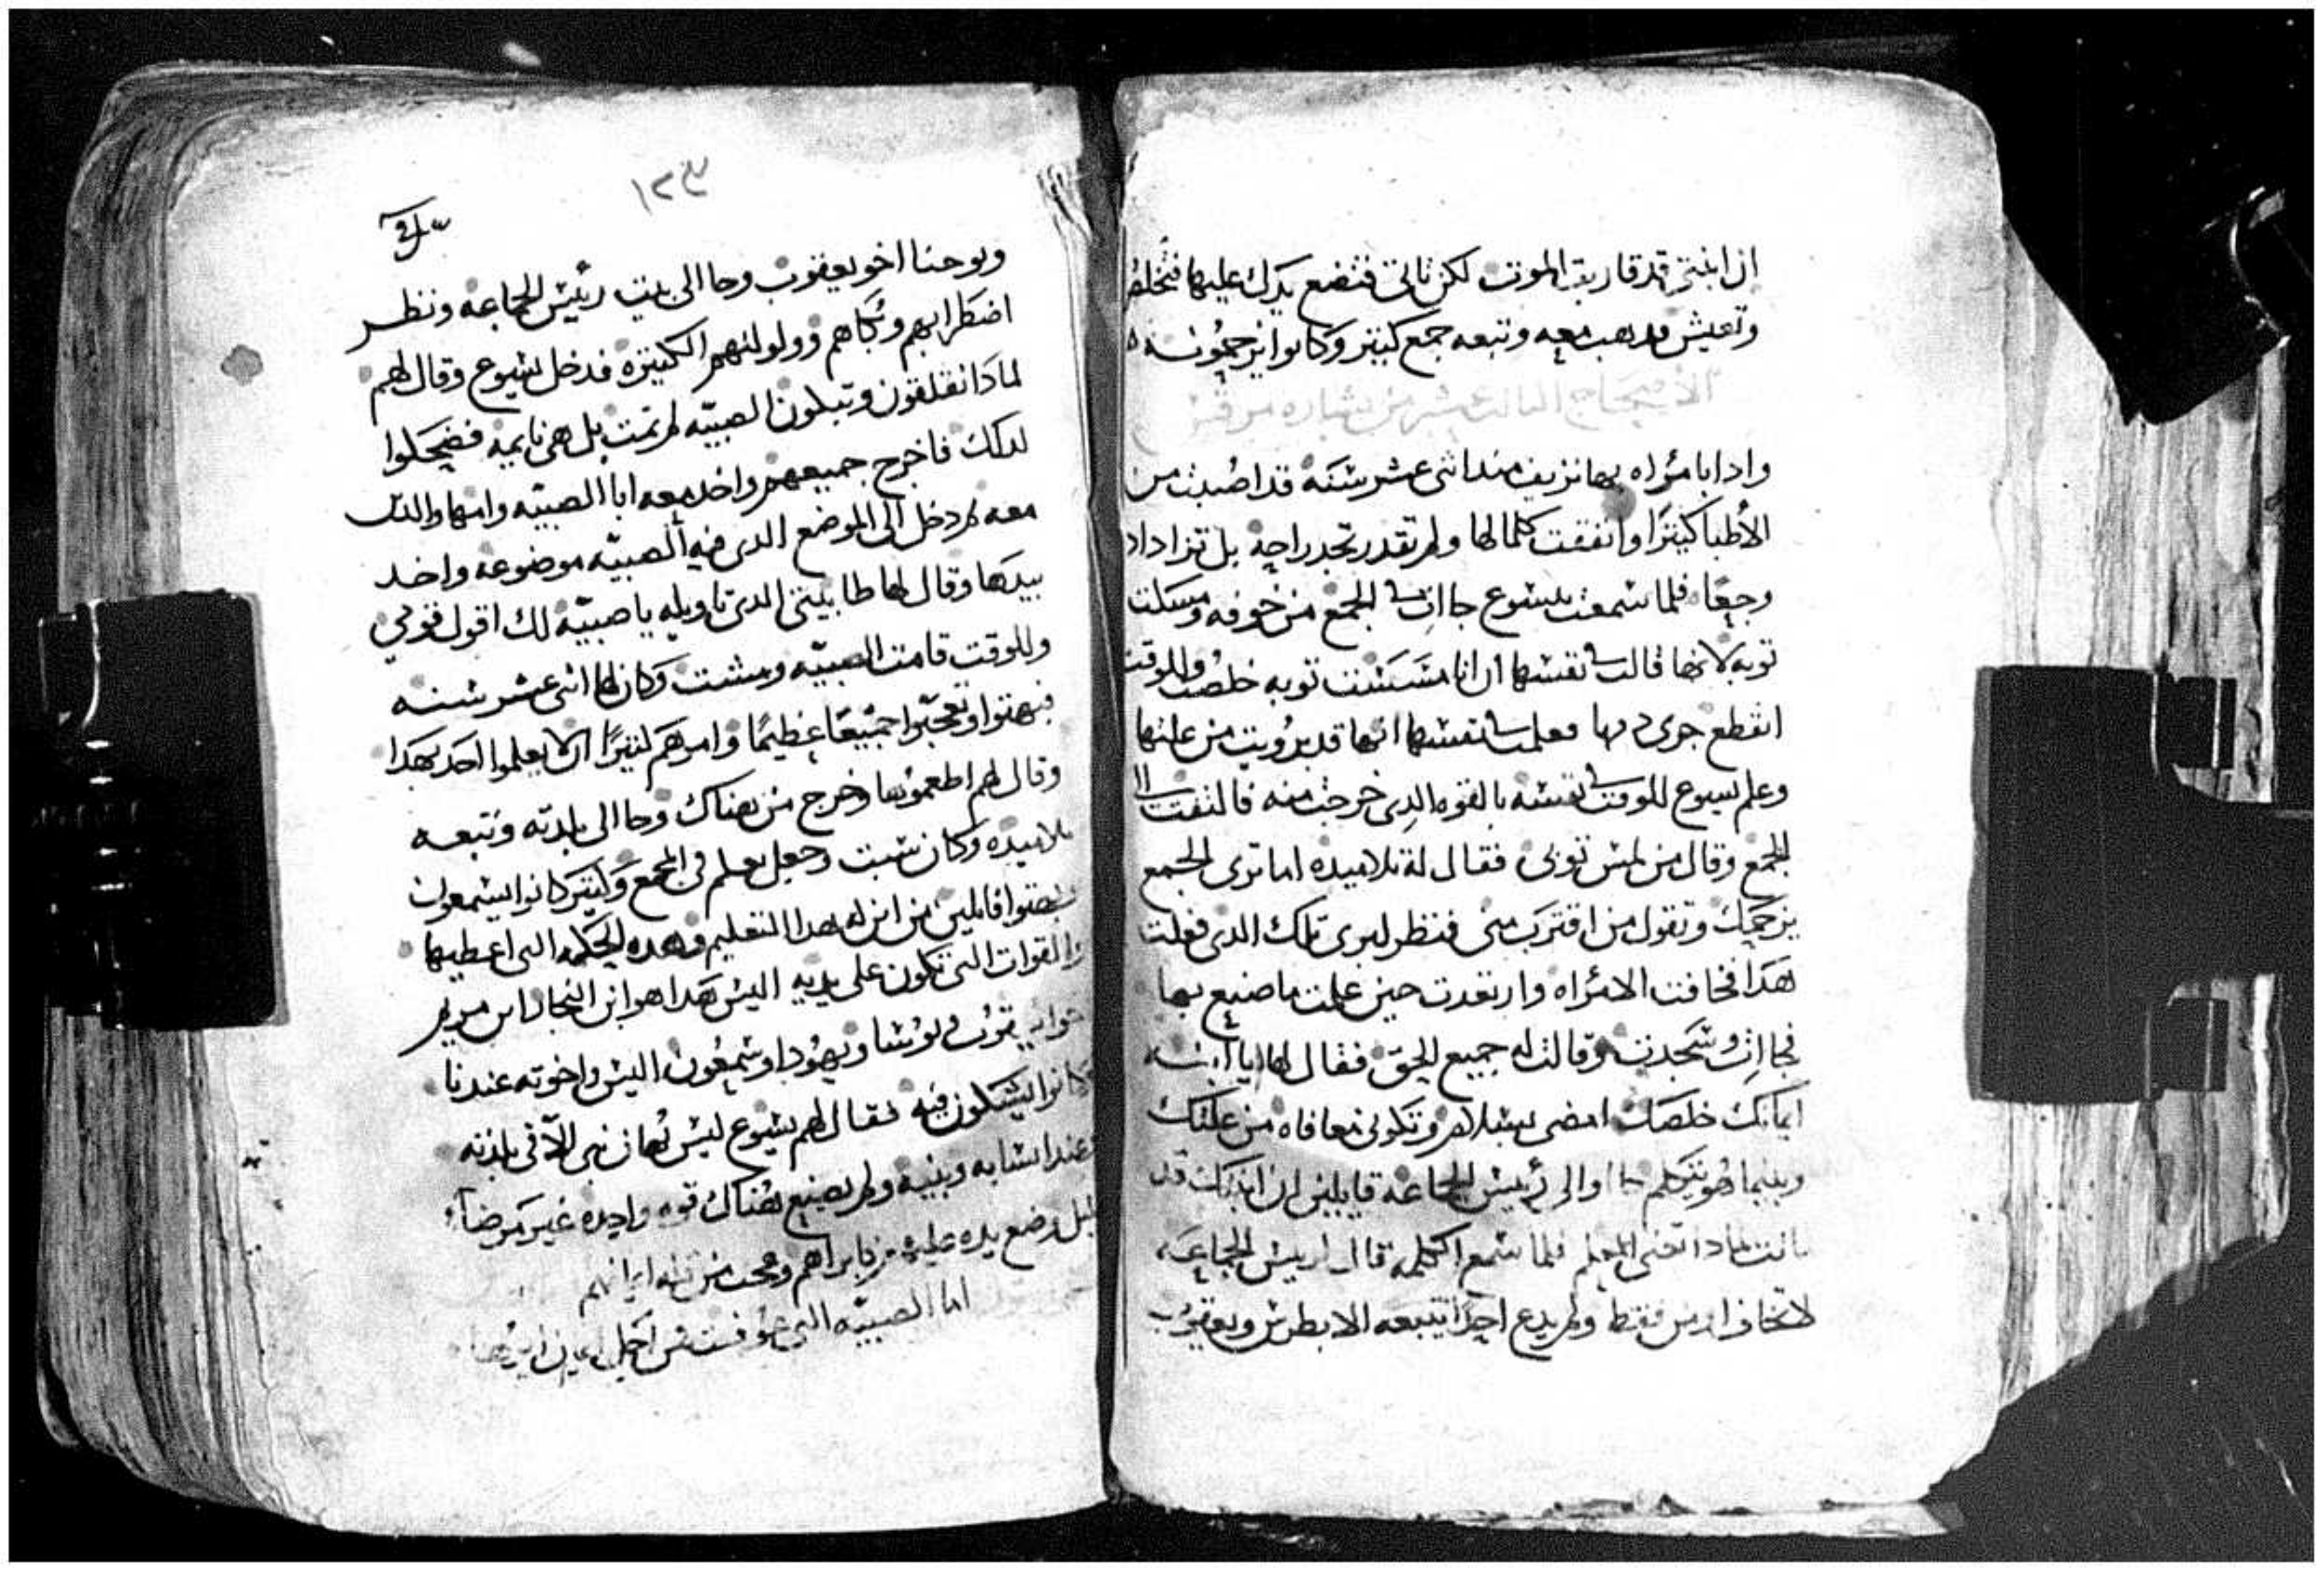 ان ابنتي قد قاربة الموت لكن تاتي فتضع يدك عليها فتخلص
وتعيش فدهب معه وتبعه جمع كبير وكانوا يزحمونه
الاصحاح الثالث عشر من بشاره مرقس
وادا بامراه بها نزيف مند اثنى عشر سنه قد اصيبت من
الأطبا كثيرًا وانفقت كلما لها ولم تقدر تجد راحة بل تزاداد
وجعًا فلما سمعت بيسوع جات في الجمع من خوفه ومسكت
توبه لانها قالت في نفسها ان انا مسست توبه خلصت وللوقت
انقطع جرى دمها فعلمت في نفسها انها قد برويت من علتها
وعلم يسوع للوقت في نفسه بالقوه الدى خرجت منه فالتفت الى
الجمع وقال من لمس توبى فقال له تلاميده اما ترى الجمع
يزحمك وتقول من اقترب منى فنظر ليرى تلك الدى فعلت
هدا فخافت الامراه وارتعدت حين علمت ما صنع بها
فجات وسجدت وقالت له جميع الحق فقال لها يا ابنه
ايمانك خلصك امضى بسلام وتكونى معافاه من علتك
وبينما هو يتكلم جاوا الى رئيس الجماعه قايلين ان ابنتك قد
ماتت لمادا تعنى المعلم فلما سمع الكلمه قال لرييس الجماعه
لا تخاف امن فقط ولم يدع احدًا يتبعه الا بطرس ويعقوب
١٢٤
ويوحنا اخو يعقوب وجا الى بيت رئيس الجماعه ونظر
اضطرابهم وبُكاهم وولولتهم الكثيره فدخل يسوع وقال لهم
لمادا تقلقون وتبكون الصبيّه لم تمت بل هى نايمه فضحكوا
لدلك فاخرج جميعهم واخد معه ابا الصبيّه وامها والدى
معه ثم دخل الى الموضع الدى فيه الصبيّه موضوعه واخد
بيدها وقال لها طابيتى الدى تاويله يا صبيّة لك اقول قومي
وللوقت قامت الصبيّه ومشت وكان لها اثنى عشر سنه
فبهتوا وتعجبوا جميعًا عظيمًا وامرهم كثيرًا ان لا يعلموا احد بهدا
وقال لهم اطعموها وخرج من هناك وجا الى بلدته وتبعه
تلاميده وكان سبت وجعل يعلم فى المجمع وكثير كانوا يسمعون
فبهتوا قايلين من اين له هدا التعليم وهده الحكمه التى اعطيها
والقوات التى تكون على يديه اليس هدا هو ابن النجار ابن مريم
اخو يعقوب ويوسا ويهودا وشمعون اليس واخوته عندنا
وكانوا يشكون فيه فقال لهم يسوع ليس يُهان نبى الّا فى بلدته
وعند انسابه وبيته ولم يصنع هناك قوه واحده غير مرضا
قليل وضع يده عليهم فابراهم وعجب من قله ايمانهم
اما الصبيّه التى عوفت من اجل ايمان ابيها